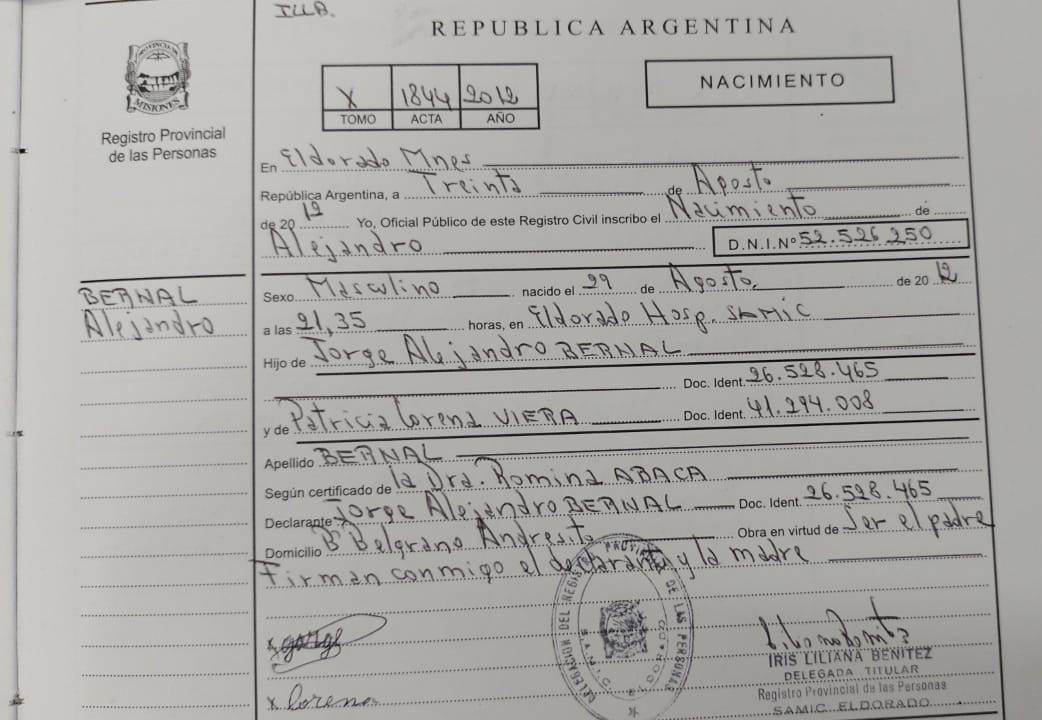 ILLA.
REPUBLICA ARGENTINA
PROVINCIA DE MISIONES
Registro Provincial
de las Personas
X 1844 2012
TOMO ACTA AÑO
NACIMIENTO
En Eldorado Mnes
República Argentina, a Treinta de Agosto
de 20 12 Yo, Oficial Público de este Registro Civil inscribo el Nacimiento de
Alejandro D.N.I.Nº 52.526.250
BERNAL
Alejandro
Sexo Masculino nacido el 29 de Agosto de 20 12
a las 21,35 horas, en Eldorado Hosp. SAMIC
Hijo de Jorge Alejandro BERNAL
Doc. Ident. 26.528.465
y de Patricia Lorena VIERA Doc. Ident. 41.294.008
Apellido BERNAL
Según certificado de la Dra. Romina ABACA
Declarante Jorge Alejandro BERNAL Doc. Ident. 26.528.465
Domicilio Bº Belgrano Andresito Obra en virtud de Ser el padre
Firman conmigo el declarante y la madre
DELEGACION DEL REGISTRO PROV. DE LAS PERSONAS
S.A.M.I.C. ELDORADO
x Lorena
IRIS LILIANA BENITEZ
DELEGADA TITULAR
Registro Provincial de las Personas
SAMIC ELDORADO